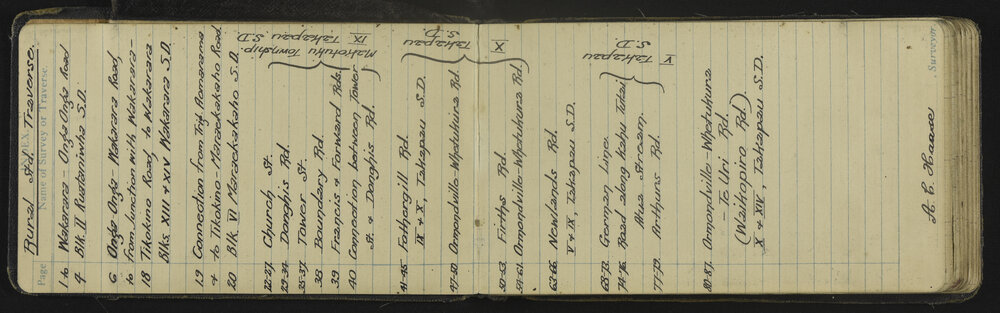 Rural Std. Traverse.
INDEX
Page Name of Survey or Traverse. Surveyor
1 to Wakarara - Onga Onga Road
4 Blk II Ruataniwha S.D.
6 Onga Onga - Wakarara Road
to from Junction with Wakarara -
18 Tikokino Road, to Wakarara
Blks. XIII & XIV Wakarara S.D.
19 Connection from Trig Aamarama
& to Tikokino - Maraekakaho Road
20 Blk VI Maraekakaho S.D.
22-27. Church St.
29-34. Donghis Rd.
35-37. Tower St.
38 Boundary Rd.
39 Francis & Forward Rds.
40 Connection between Tower
St. & Donghis Rd.
Makotuku Township.
IX
Takapau
S.D.
41-45. Fothergill Rd.
IX & X, Takapau S.D.
47-50. Ormondville - Whetukura Rd.
Takapau
S.D.
52-53. Firths Rd.
54-61. Ormondville - Whetukura Rd.
X
63-66. Newlands Rd.
V & IX, Takapau S.D.
68-72. German Line.
74-76. Road along Kahu Tukai
Atua Stream.
77-79. Arthurs Rd.
V
Takapau
S.D.
81-87. Ormondville - Whetukura
- Te Uri Rd.
(Waikopiro Rd.)
X & XIV, Takapau S.D.
A C Haase